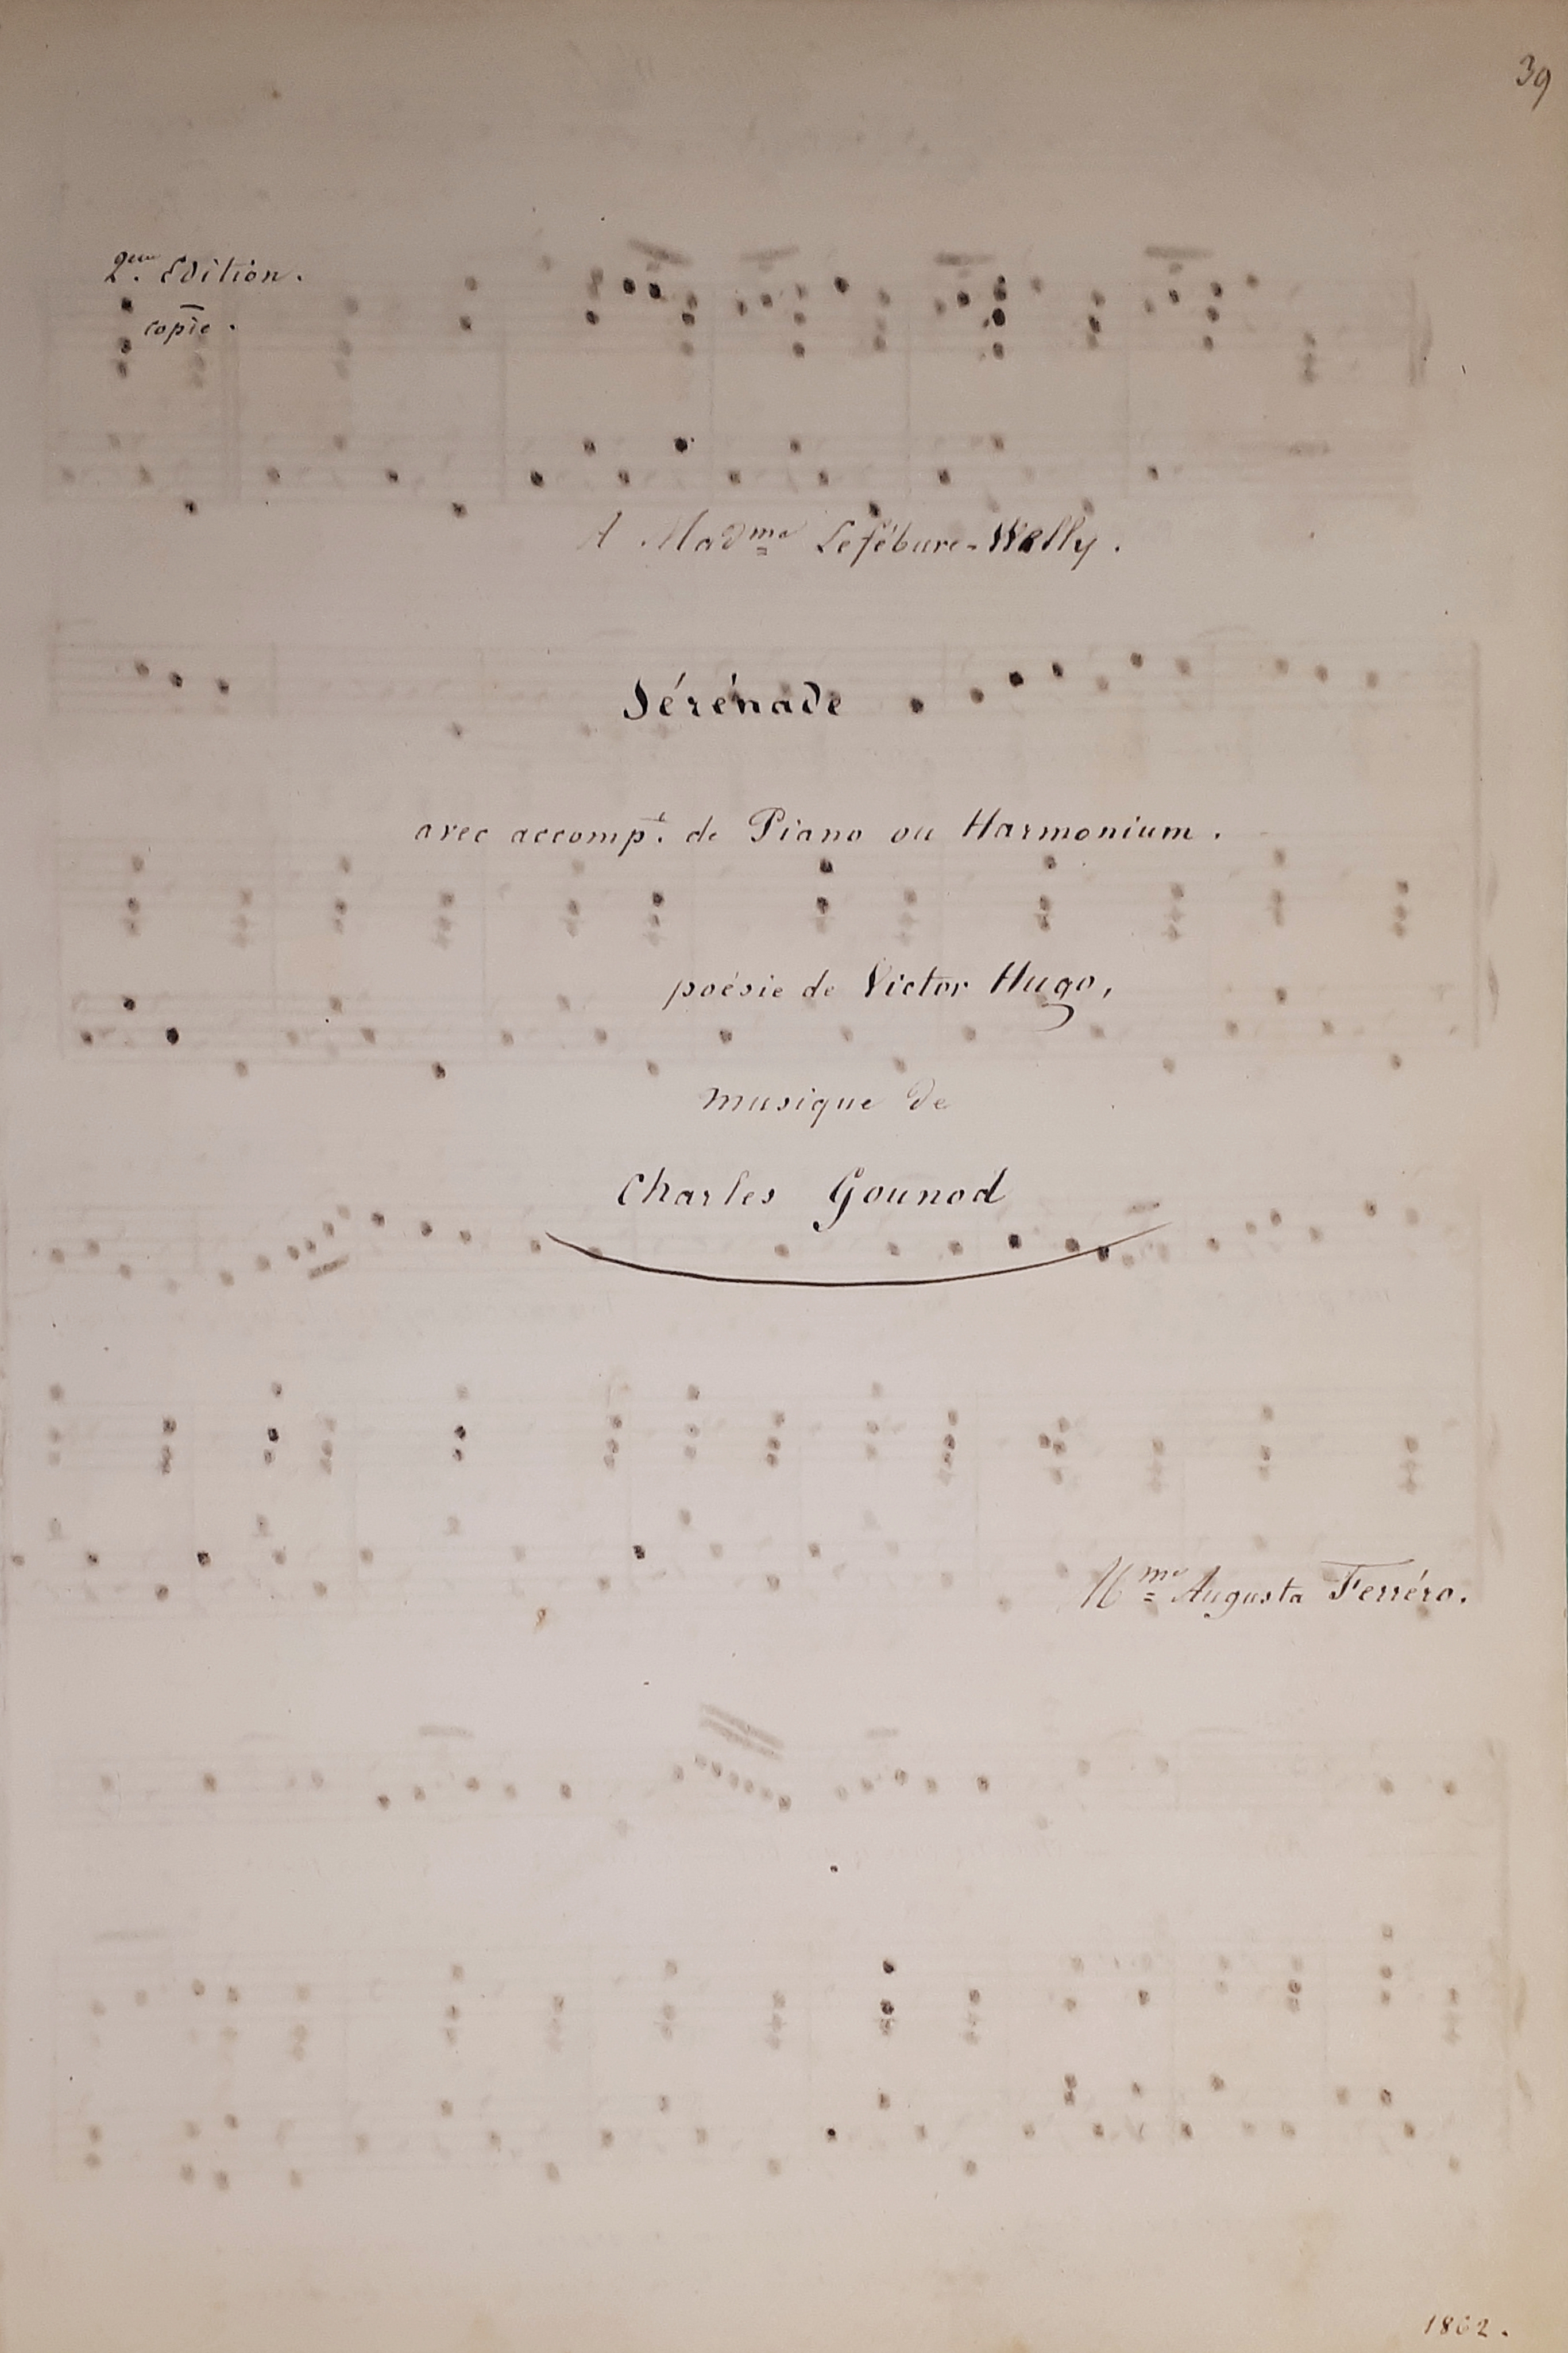 39
2ème Edition.
copie.
A Madme Lefébure-Wélly.
Sérénade
avec accompt. de Piano ou Harmonium.
poésie de Victor Hugo,
musique de
Charles Gounod
Mme Augusta Ferréro.
1862.